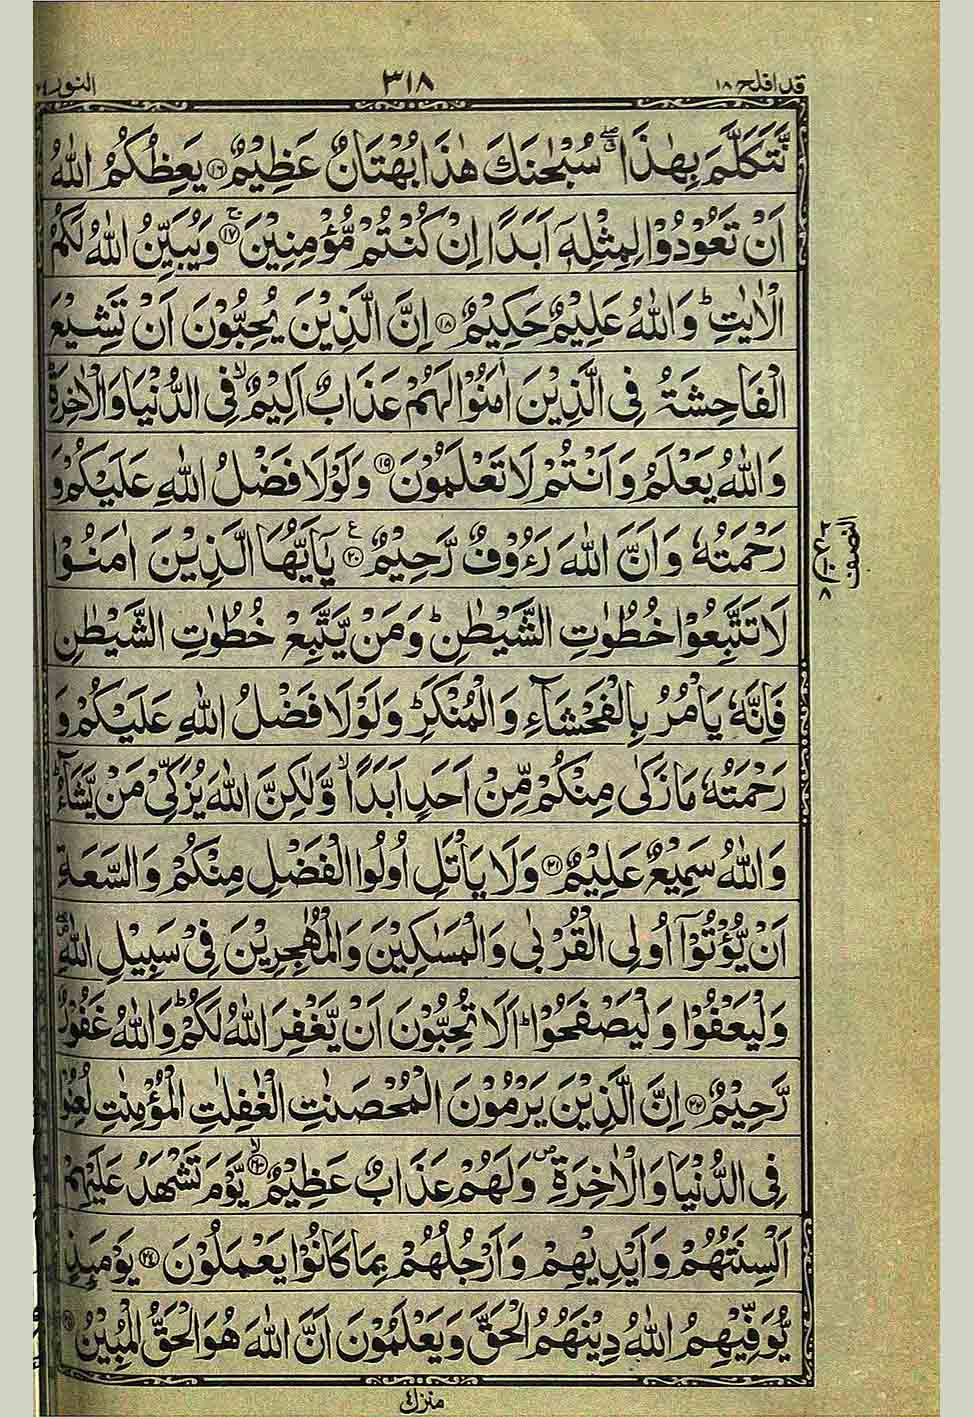 قد افلح ١٨
٣١٨
النور ٢٤
نَّتَكَلَّمَ بِهٰذَا ۖ سُبْحٰنَكَ هٰذَا بُهْتَانٌ عَظِيْمٌ ﴿١٦﴾ يَعِظُكُمُ اللّٰهُ
اَنْ تَعُوْدُوْا لِمِثْلِهٖۤ اَبَدًا اِنْ كُنْتُمْ مُّؤْمِنِيْنَ ۚ ﴿١٧﴾ وَيُبَيِّنُ اللّٰهُ لَكُمُ
الْاٰيٰتِ ؕ وَاللّٰهُ عَلِيْمٌ حَكِيْمٌ ﴿١٨﴾ اِنَّ الَّذِيْنَ يُحِبُّوْنَ اَنْ تَشِيْعَ
الْفَاحِشَةُ فِى الَّذِيْنَ اٰمَنُوْا لَهُمْ عَذَابٌ اَلِيْمٌ ۙ فِى الدُّنْيَا وَالْاٰخِرَةِ ؕ
وَاللّٰهُ يَعْلَمُ وَاَنْتُمْ لَا تَعْلَمُوْنَ ﴿١٩﴾ وَلَوْلَا فَضْلُ اللّٰهِ عَلَيْكُمْ وَ
رَحْمَتُهٗ وَاَنَّ اللّٰهَ رَءُوْفٌ رَّحِيْمٌ ﴿٢٠﴾ ع يٰۤاَيُّهَا الَّذِيْنَ اٰمَنُوْا
لَا تَتَّبِعُوْا خُطُوٰتِ الشَّيْطٰنِ ؕ وَمَنْ يَّتَّبِعْ خُطُوٰتِ الشَّيْطٰنِ
فَاِنَّهٗ يَاْمُرُ بِالْفَحْشَآءِ وَالْمُنْكَرِ ؕ وَلَوْلَا فَضْلُ اللّٰهِ عَلَيْكُمْ وَ
رَحْمَتُهٗ مَا زَكٰى مِنْكُمْ مِّنْ اَحَدٍ اَبَدًا ۙ وَّلٰكِنَّ اللّٰهَ يُزَكِّىْ مَنْ يَّشَآءُ ؕ
وَاللّٰهُ سَمِيْعٌ عَلِيْمٌ ﴿٢١﴾ وَلَا يَاْتَلِ اُولُوا الْفَضْلِ مِنْكُمْ وَالسَّعَةِ
اَنْ يُّؤْتُوْۤا اُولِى الْقُرْبٰى وَالْمَسٰكِيْنَ وَالْمُهٰجِرِيْنَ فِىْ سَبِيْلِ اللّٰهِ ۖ
وَلْيَعْفُوْا وَلْيَصْفَحُوْا ؕ اَلَا تُحِبُّوْنَ اَنْ يَّغْفِرَ اللّٰهُ لَكُمْ ؕ وَاللّٰهُ غَفُوْرٌ
رَّحِيْمٌ ﴿٢٢﴾ اِنَّ الَّذِيْنَ يَرْمُوْنَ الْمُحْصَنٰتِ الْغٰفِلٰتِ الْمُؤْمِنٰتِ لُعِنُوْا
فِى الدُّنْيَا وَالْاٰخِرَةِ ۪ وَلَهُمْ عَذَابٌ عَظِيْمٌ ۙ ﴿٢٣﴾ يَّوْمَ تَشْهَدُ عَلَيْهِمْ
اَلْسِنَتُهُمْ وَاَيْدِيْهِمْ وَاَرْجُلُهُمْ بِمَا كَانُوْا يَعْمَلُوْنَ ﴿٢٤﴾ يَوْمَئِذٍ
يُّوَفِّيْهِمُ اللّٰهُ دِيْنَهُمُ الْحَقَّ وَيَعْلَمُوْنَ اَنَّ اللّٰهَ هُوَ الْحَقُّ الْمُبِيْنُ ﴿٢٥﴾
النصف
منزل ٤